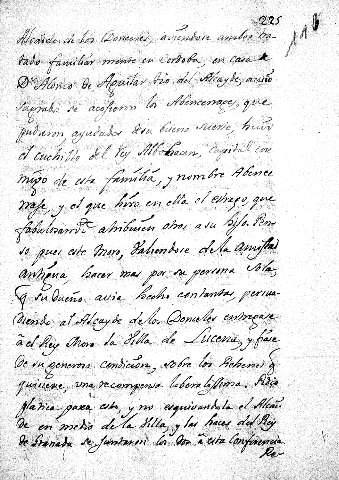 225
116
Alcaide de los Donceles, aviendose ambos tra-
tado familiar mente en Cordoba, en casa de
Dn Alonso de Aguilar tio del Alcayde, a cuio
sagrado se acogieron los Abencerrages, que
pudieron ayudados de su buena suerte, huir
el cuchillo del Rey Albohacen, Capital ene
migo de esta familia, y nombre Abence
rrage, y el que hizo en ella el estrago, que
fabulosamte atribuien otros a su hijo. Pen-
so pues este Moro, Valiendose de la amistad
antigua hacer mas por su persona sola,
q su Dueño avia hecho con tantas, persua-
diendo al Alcayde de los Donceles entregase
à el Rey Moro la Villa de Lucena, y fiase
de su generosa condicion, sobre los rehenes q
quisiese, una recompensa liberalissima. Pidio
platica para esto, y no esquivandola el Alcai
de en medio de la Villa, y las haces del Rey
de Granada se juntaron los dos à esta Conferencia
Re-